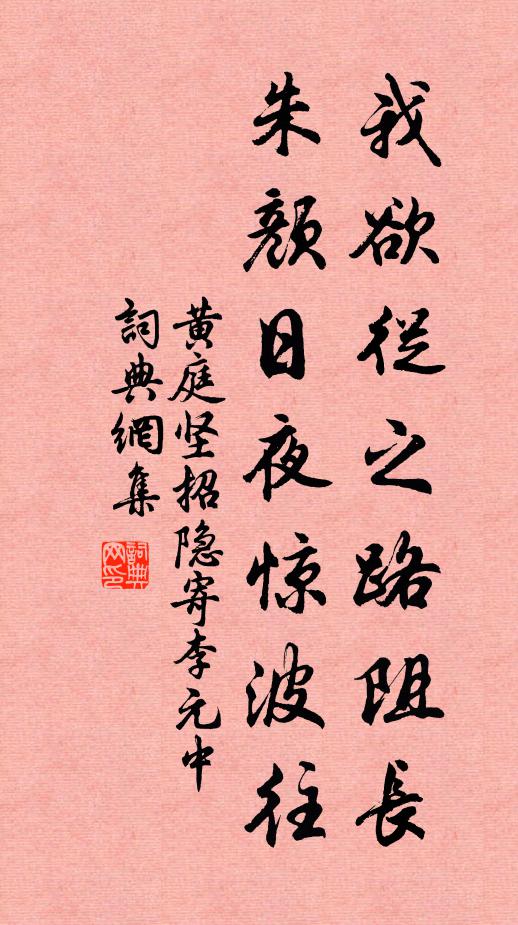 我欲從之路阻長
朱顏日夜惊波往
黄庭坚招隐寄李元中
詞典網集
詞典网印